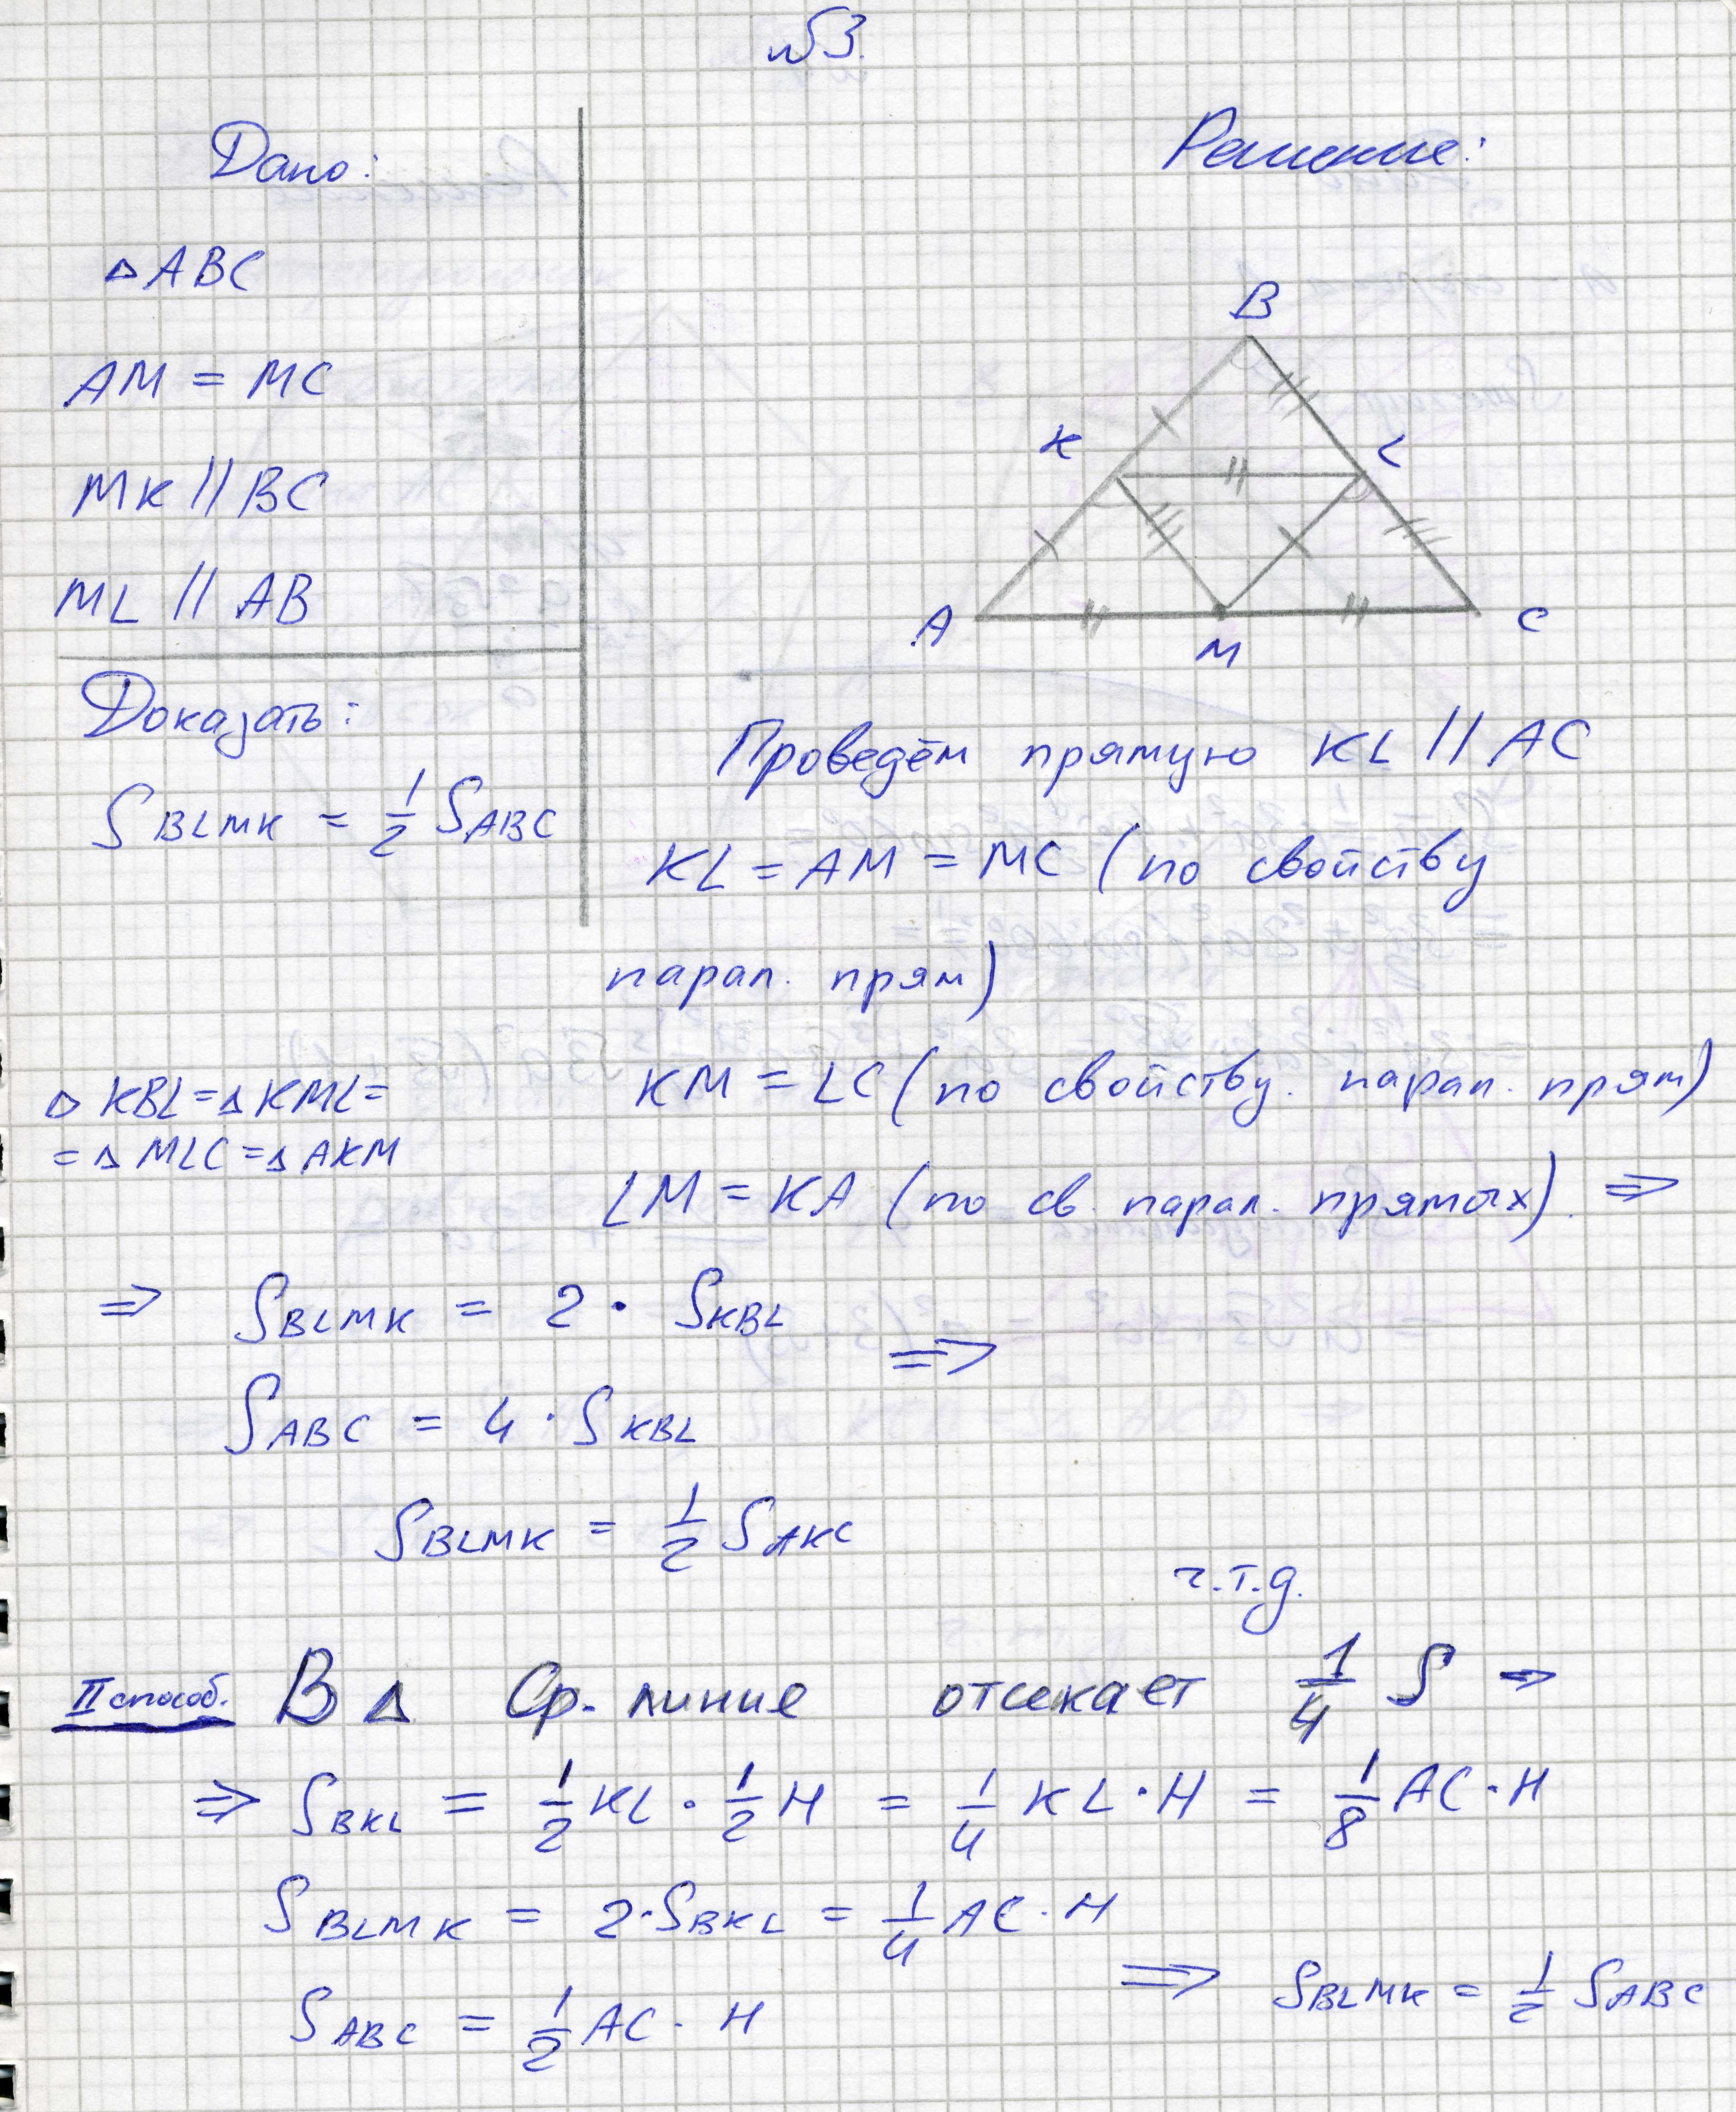 №3.
Дано:
△ABC
AM = MC
MK || BC
ML || AB
Доказать:
S BLMK = 1/2 S ABC
Решение:
B
K
L
A
M
C
Проведём прямую KL || AC
KL = AM = MC (по свойству
парал. прям)
KM = LC (по свойству. парал. прям)
△ KBL = △ KML =
= △ MLC = △ AKM
LM = KA (по св. парал. прямых). ⇒
⇒ S BLMK = 2 · S KBL
⇒
S ABC = 4 · S KBL
S BLMK = 1/2 S AKC
ч.т.д.
II способ. В △ Ср. линия отсекает 1/4 S ⇒
⇒ S BKL = 1/2 KL · 1/2 H = 1/4 KL · H = 1/8 AC · H
S BLMK = 2 · S BKL = 1/4 AC · H
⇒ S BLMK = 1/2 S ABC
S ABC = 1/2 AC · H